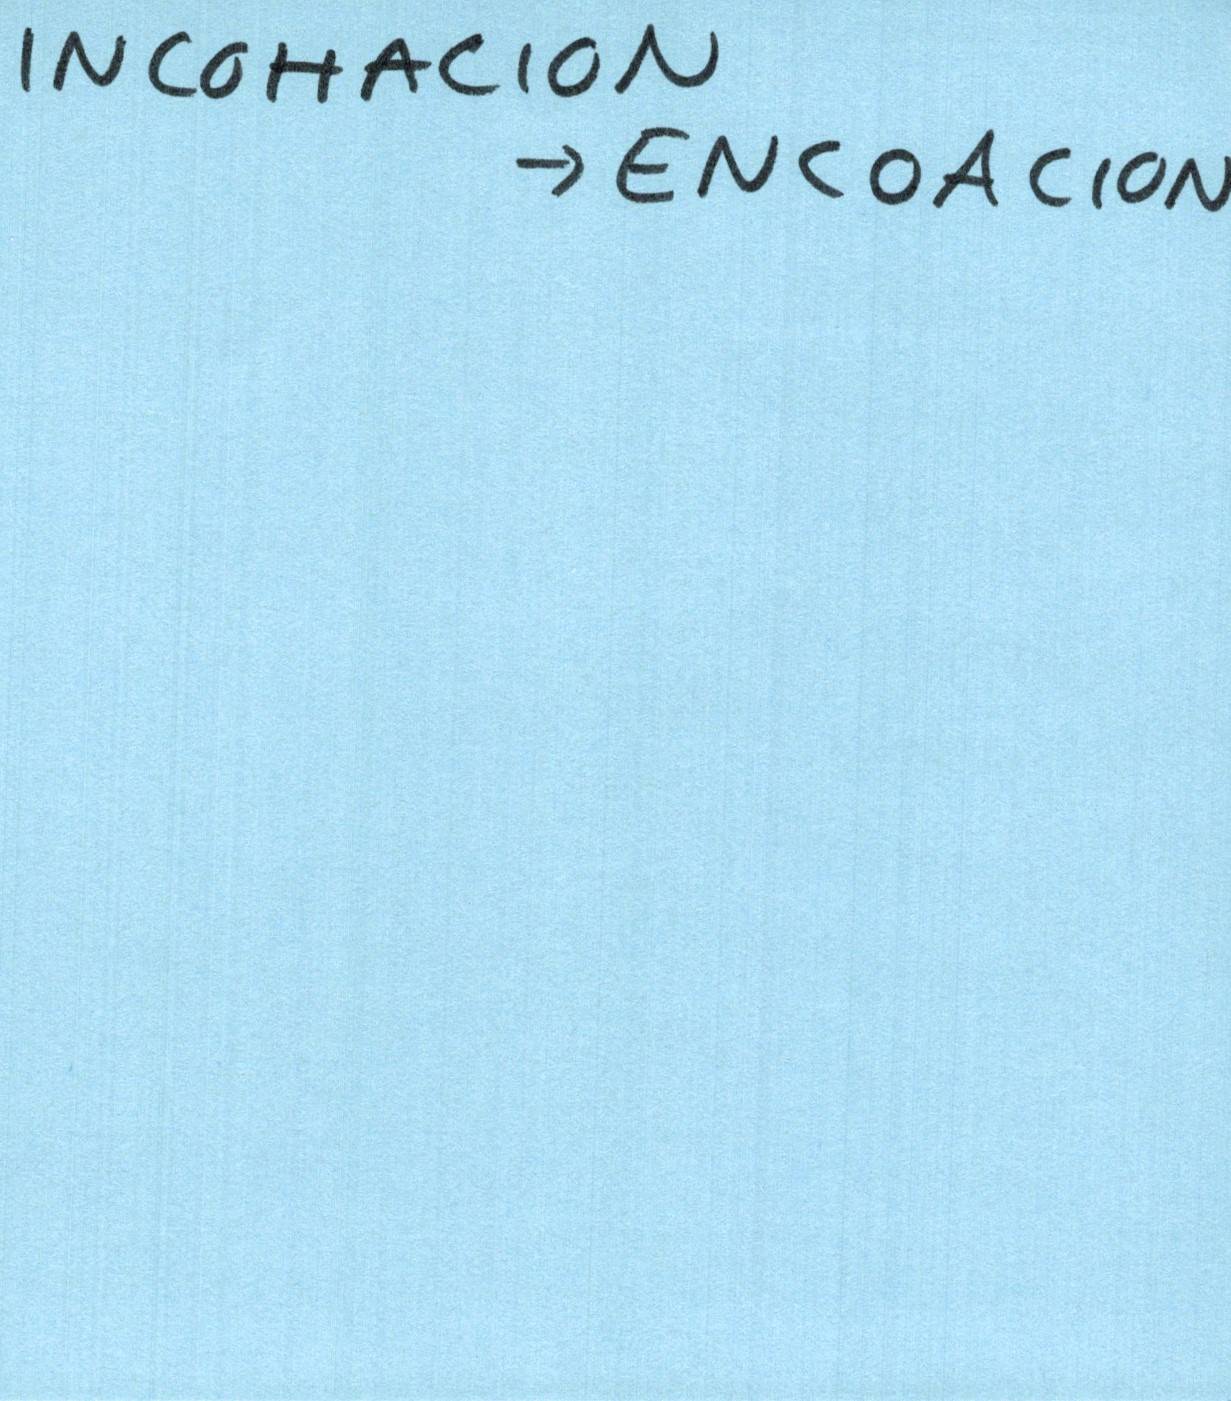 INCOHACION
→ ENCOACION